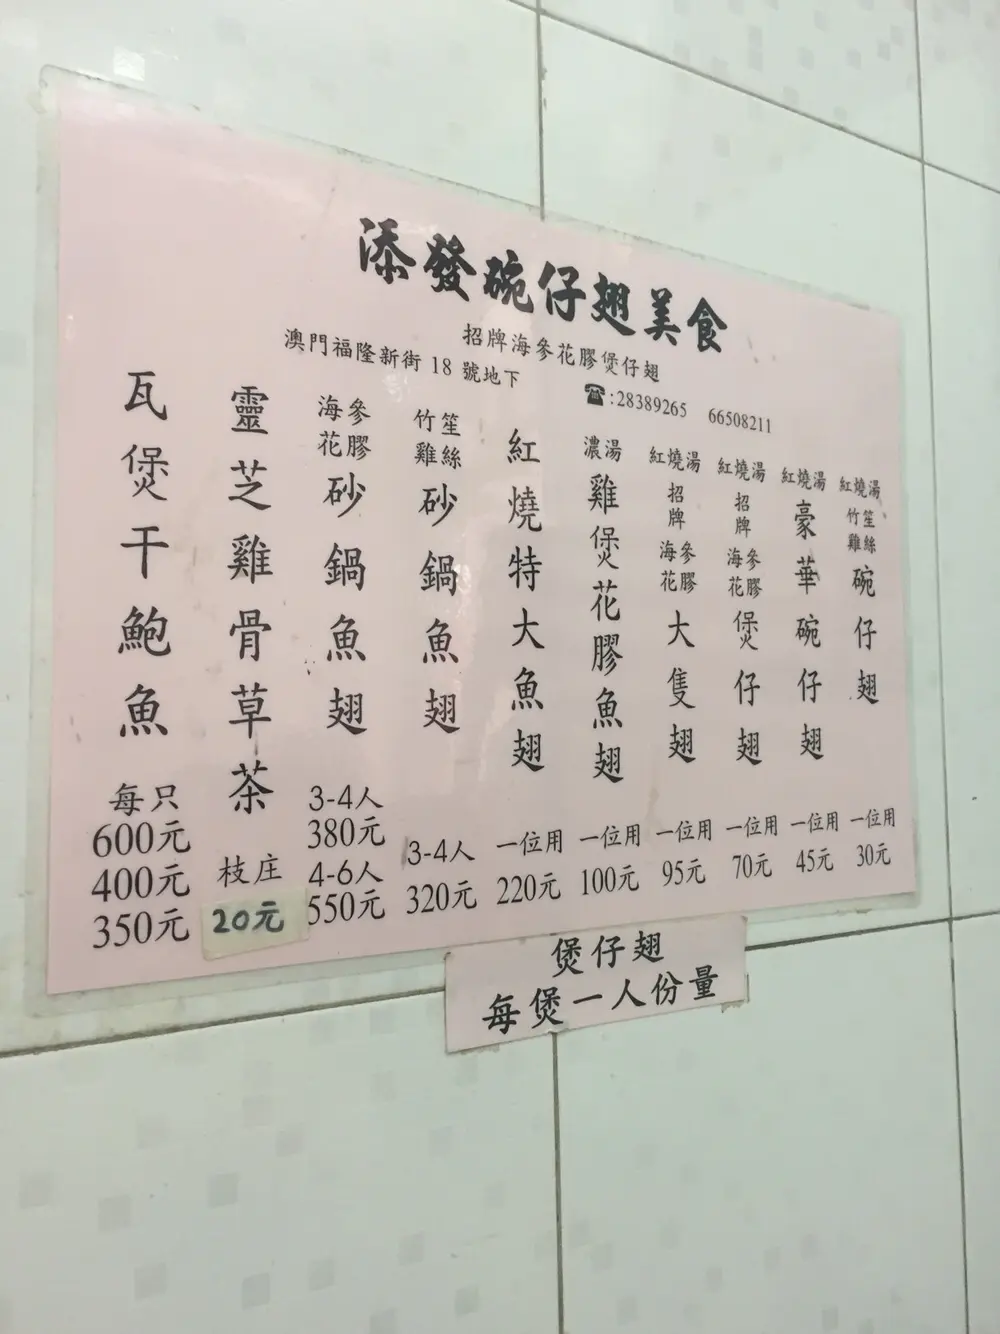 添發碗仔翅美食
招牌海參花膠煲仔翅
澳門福隆新街 18 號地下
☎:28389265 66508211
紅燒湯 竹笙雞絲 碗仔翅 一位用 30元
紅燒湯 豪華碗仔翅 一位用 45元
紅燒湯 招牌 海參花膠 煲仔翅 一位用 70元
紅燒湯 招牌 海參花膠 大隻翅 一位用 95元
濃湯 雞煲花膠魚翅 一位用 100元
紅燒特大魚翅 一位用 220元
竹笙雞絲 砂鍋魚翅 3-4人 320元
海參花膠 砂鍋魚翅 3-4人 380元 4-6人 550元
靈芝雞骨草茶 枝庄 20元
瓦煲干鮑魚 每只 600元 400元 350元
煲仔翅
每煲一人份量